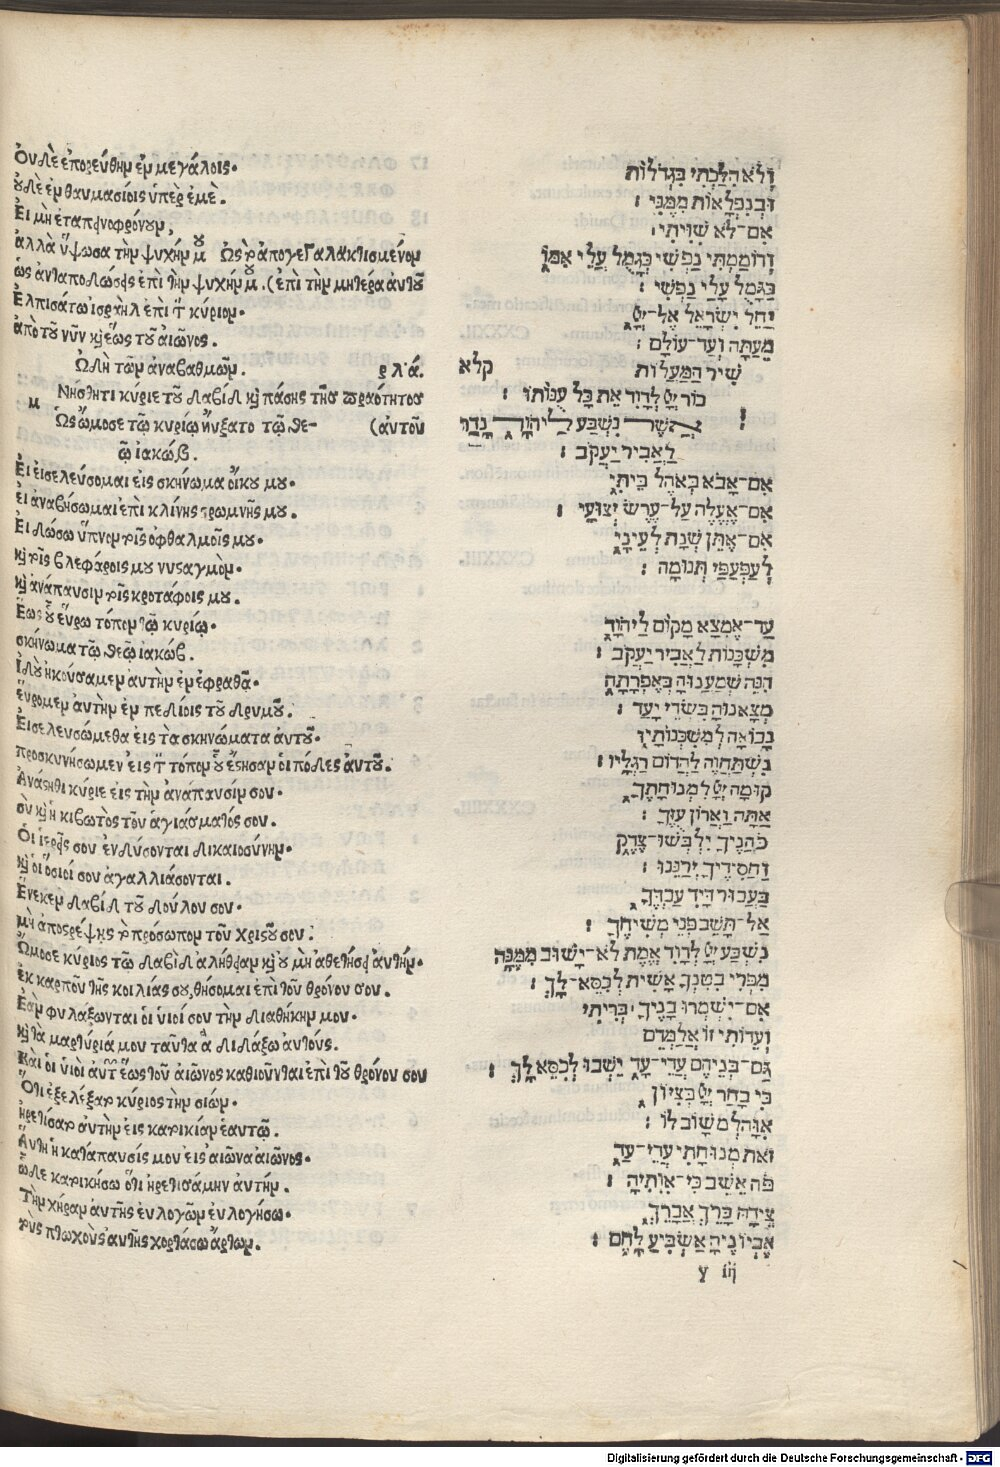 Ὀυδὲ ἐπορεύθην ἐν μεγάλοις.
ὀυδὲ ἐν θαυμασίοις ὑπὲρ ἐμέ.
Ἐι μὴ ἐταπεινοφρόνουν,
ἀλλὰ ὕψωσα τὴν ψυχήν μου Ὡς τὸ ἀπογεγαλακτισμένον
ὡς ἀνταποδώσεις ἐπὶ τὴν ψυχήν μου. (ἐπὶ τὴν μητέρα ἀυτοῦ
Ἐλπισάτω ἰσραὴλ ἐπὶ τὸν κύριον.
ἀπὸ τοῦ νῦν καὶ ἕως τοῦ ἀιῶνος.
Ὠδὴ τῶν ἀναβαθμῶν. ρλά.
Μνήσθητι κύριε τοῦ δαβὶδ καὶ πάσης τῆς πραότητος
Ὡς ὤμοσε τῶ κυρίω ἠύξατο τῶ θε- (ἀυτοῦ
ῶ ἰακώβ.
Ἐι ἐισελεύσομαι ἐις σκήνωμα ὄικου μου.
ἐι ἀναβήσωμαι ἐπὶ κλίνης στρωμνῆς μου.
Ἐι δώσω ὕπνον τοῖς ὀφθαλμοῖς μου.
καὶ τοῖς βλεφάροις μου νυσταγμὸν.
καὶ ἀνάπαυσιν τοῖς κροτάφοις μου.
Ἕως οὗ ἕυρω τόπον τῶ κυρίω.
σκήνωμα τῶ θεῶ ἰακώβ.
Ἰδοὺ ἠκούσαμεν ἀυτὴν ἐν ἐφραθᾶ.
ἕυρομεν ἀυτὴν ἐν πεδίοις τοῦ δρυμοῦ.
Ἐισελευσώμεθα ἐις τὰ σκηνώματα ἀυτοῦ.
προσκυνήσωμεν ἐις τὸν τόπον οὗ ἔστησαν ὁι πόδες ἀυτοῦ.
Ἀνάστηθι κύριε ἐις τὴν ἀνάπαυσίν σου.
σὺ καὶ ἡ κιβωτὸς τοῦ ἁγιάσματός σου.
Ὁι ἱερεῖς σου ἐνδύσονται δικαιοσύνην.
καὶ ὁι ὅσιοί σου ἀγαλλιάσονται.
Ἕνεκεν δαβὶδ τοῦ δούλου σου.
μὴ ἀποστρέψης τὸ πρόσωπον τοῦ χριστοῦ σου.
Ὤμοσε κύριος τῶ δαβὶδ ἀλήθειαν καὶ οὐ μὴ ἀθετήσει ἀυτὴν.
ἐκ καρποῦ τῆς κοιλίας σου, θήσομαι ἐπὶ τοῦ θρόνου σου.
Ἐὰν φυλάξωνται ὁι ὑιοί σου τὴν διαθήκην μου.
καὶ τὰ μαρτύριά μου ταῦτα ἃ διδάξω ἀυτούς.
Καὶ ὁι ὑιοὶ ἀυτῶν ἕως τοῦ ἀιῶνος καθιοῦνται ἐπὶ τοῦ θρόνου σου
Ὅτι ἐξελέξατο κύριος τὴν σιών.
ἡρετίσατο ἀυτὴν ἐις κατοικίαν ἑαυτῶ.
Ἅυτη ἡ κατάπαυσίς μου ἐις ἀιῶνα ἀιῶνος.
ὧδε κατοικήσω ὅτι ἡρετισάμην ἀυτήν.
Τὴν χήραν ἀυτῆς ἐυλογῶν ἐυλογήσω.
τοὺς πτωχοὺς ἀυτῆς χορτάσω ἄρτων.
וְלֹא הִלַּכְתִּי בִּגְדֹלוֹת
וּבְנִפְלָאוֹת מִמֶּנִּי :
אִם־לֹא שִׁוִּיתִי
וְדוֹמַמְתִּי נַפְשִׁי כְּגָמֻל עֲלֵי אִמּוֹ
כַּגָּמֻל עָלַי נַפְשִׁי :
יַחֵל יִשְׂרָאֵל אֶל־יְיָ
מֵעַתָּה וְעַד־עוֹלָם :
שִׁיר הַמַּעֲלוֹת קלא
זכוֹר יְיָ לְדָוִד אֵת כָּל עֻנּוֹתוֹ :
אֲשֶׁר נִשְׁבַּע לַיהוָה נָדַר
לַאֲבִיר יַעֲקֹב :
אִם־אָבֹא בְּאֹהֶל בֵּיתִי
אִם־אֶעֱלֶה עַל־עֶרֶשׂ יְצוּעָי :
אִם־אֶתֵּן שְׁנָת לְעֵינָי
לְעַפְעַפַּי תְּנוּמָה :
עַד־אֶמְצָא מָקוֹם לַיהוָה
מִשְׁכָּנוֹת לַאֲבִיר יַעֲקֹב :
הִנֵּה שְׁמַעֲנוּהָ בְאֶפְרָתָה
מְצָאנוּהָ בִּשְׂדֵי יָעַר :
נָבוֹאָה לְמִשְׁכְּנוֹתָיו
נִשְׁתַּחֲוֶה לַהֲדוֹם רַגְלָיו :
קוּמָה יְיָ לִמְנוּחָתֶךָ
אַתָּה וַאֲרוֹן עֻזֶּךָ :
כֹּהֲנֶיךָ יִלְבְּשׁוּ־צֶדֶק
וַחֲסִידֶיךָ יְרַנֵּנוּ :
בַּעֲבוּר דָּוִד עַבְדֶּךָ
אַל־תָּשֵׁב פְּנֵי מְשִׁיחֶךָ :
נִשְׁבַּע יְיָ לְדָוִד אֱמֶת לֹא־יָשׁוּב מִמֶּנָּה
מִפְּרִי בִטְנְךָ אָשִׁית לְכִסֵּא־לָךְ :
אִם־יִשְׁמְרוּ בָנֶיךָ בְּרִיתִי
וְעֵדוֹתִי זוֹ אֲלַמְּדֵם
גַּם־בְּנֵיהֶם עֲדֵי־עַד יֵשְׁבוּ לְכִסֵּא לָךְ :
כִּי בָחַר יְיָ בְּצִיּוֹן
אִוָּהּ לְמוֹשָׁב לוֹ :
זֹאת מְנוּחָתִי עֲדֵי־עַד
פֹּה אֵשֵׁב כִּי־אִוִּתִיהָ :
צֵידָהּ בָּרֵךְ אֲבָרֵךְ
אֶבְיוֹנֶיהָ אַשְׂבִּיעַ לָחֶם :
y iij
Digitalisierung gefördert durch die Deutsche Forschungsgemeinschaft - DFG